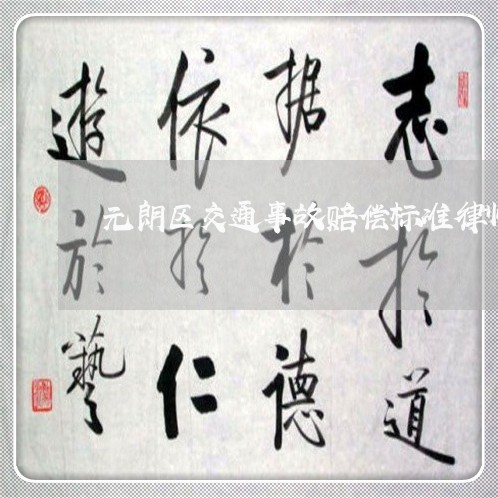 志於道
据於德
依於仁
遊於藝
元朗区交通事故赔偿标准律